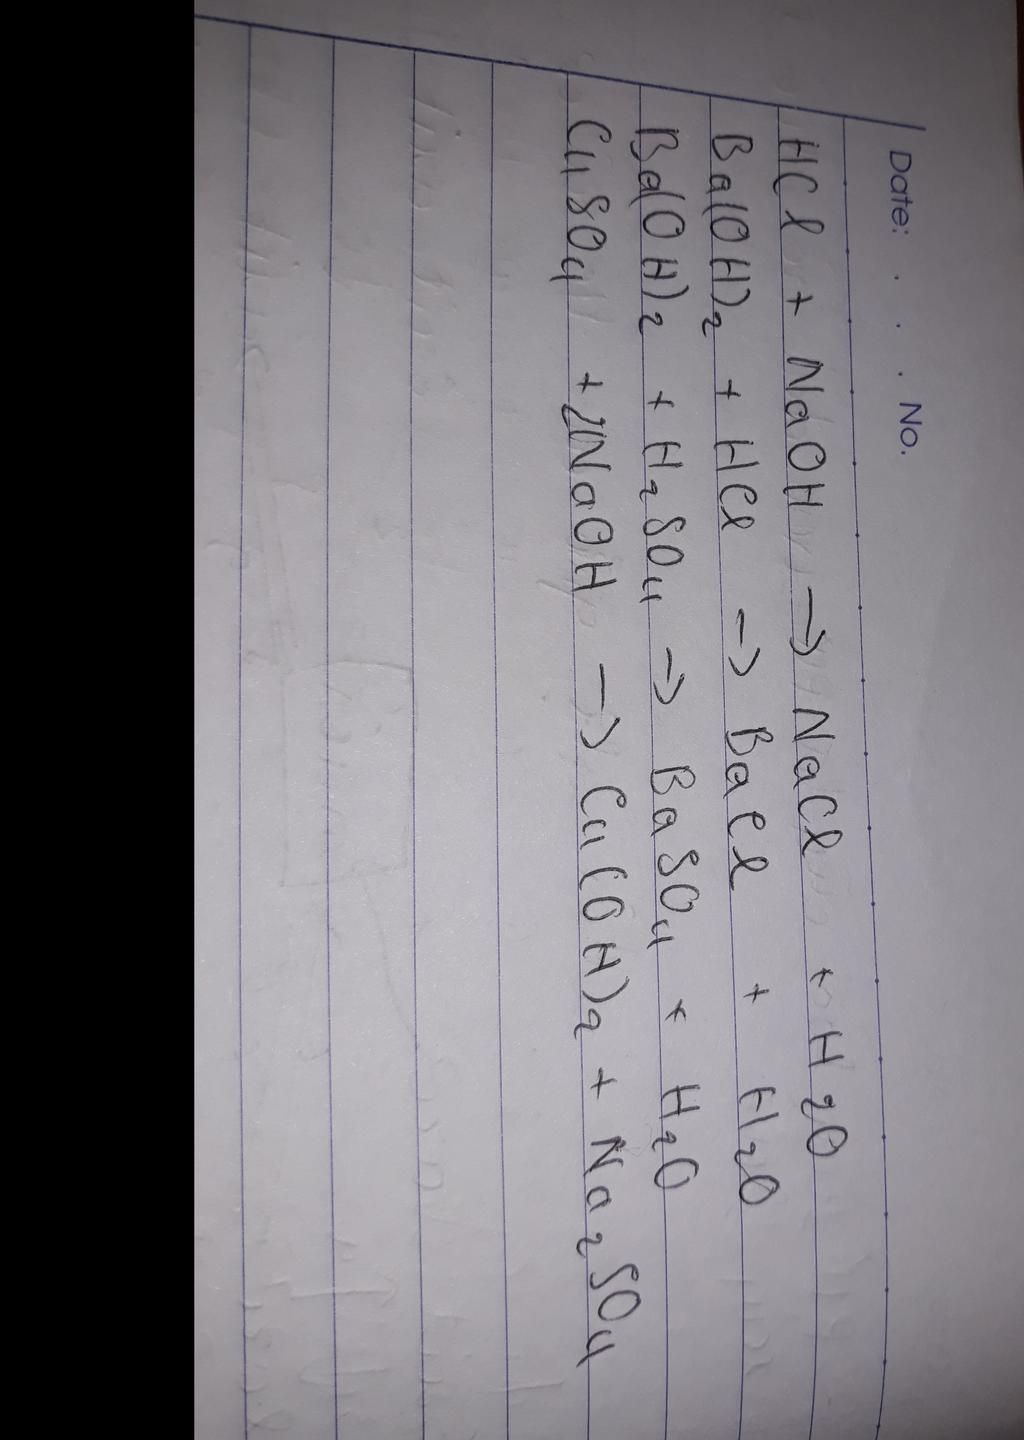 Date: . . . No.
HCl + NaOH → NaCl + H₂O
Ba(OH)₂ + HCl → BaCl + H₂O
Ba(OH)₂ + H₂SO₄ → BaSO₄ + H₂O
CuSO₄ + 2NaOH → Cu(OH)₂ + Na₂SO₄